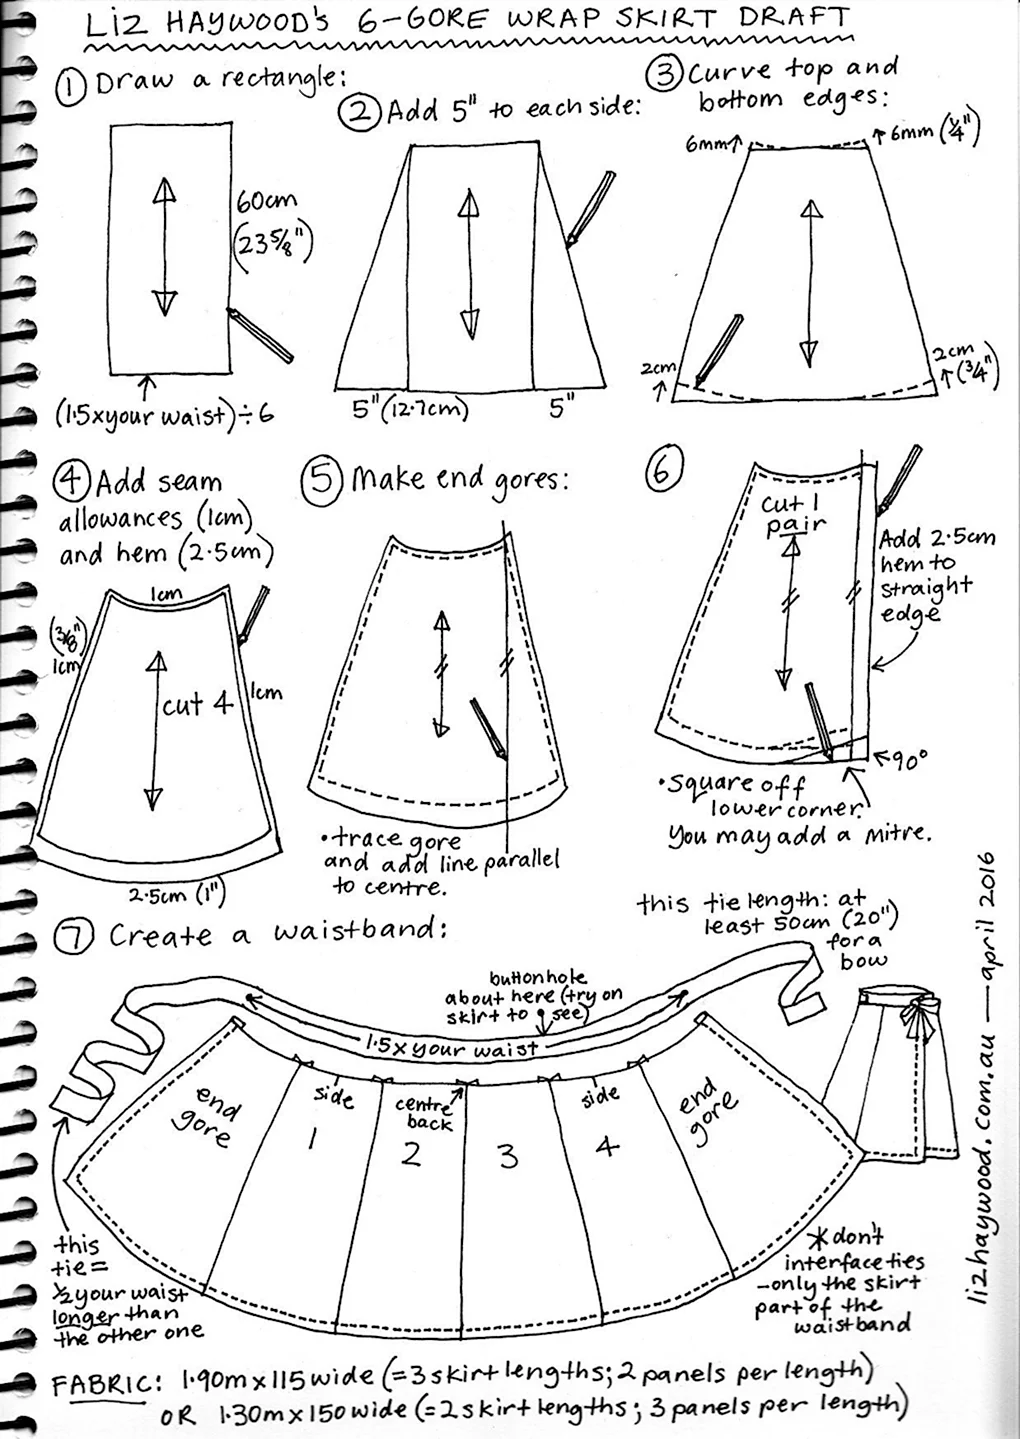 LIZ HAYWOOD'S 6-GORE WRAP SKIRT DRAFT
① Draw a rectangle:
60cm
(23 5/8")
(1.5xyour waist)÷6
② Add 5" to each side:
5" (12.7cm)
5"
③ Curve top and
bottom edges:
6mm
6mm (¼")
2cm
2cm
(¾")
④ Add seam
allowances (1cm)
and hem (2.5cm)
1cm
(3/8")
1cm
cut 4
1cm
2.5cm (1")
⑤ Make end gores:
•trace gore
and add line parallel
to centre.
⑥
cut 1
pair
Add 2.5cm
hem to
straight
edge
90°
•Square off
lower corner.
You may add a mitre.
⑦ Create a waistband:
this tie length: at
least 50cm (20")
for a
bow
buttonhole
about here (try on
skirt to see)
1.5x your waist
end
gore
side
1
centre
back
2
3
side
4
end
gore
this
tie=
½ your waist
longer than
the other one
* don't
interface ties
-only the skirt
part of the
waistband
FABRIC: 1.90m x 115 wide (=3 skirt lengths; 2 panels per length)
OR 1.30m x 150 wide (=2 skirt lengths; 3 panels per length)
lizhaywood.com.au — april 2016